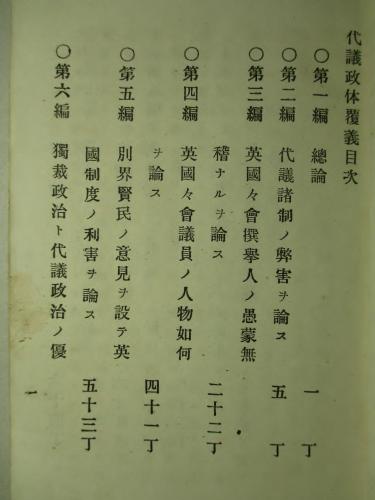 代議政体覆義目次
〇第一編　總論　一丁
〇第二編　代議諸制ノ弊害ヲ論ス　五丁
〇第三編　英國々會撰擧人ノ愚蒙無
稽ナルヲ論ス　二十二丁
〇第四編　英國々會議員ノ人物如何
ヲ論ス　四十一丁
〇第五編　別界賢民ノ意見ヲ設テ英
國制度ノ利害ヲ論ス　五十三丁
〇第六編　獨裁政治ト代議政治ノ優
一